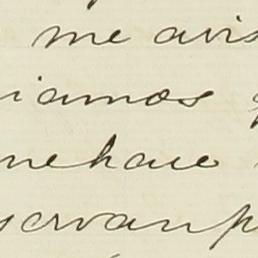 me avis
iamos
nehace
servanp